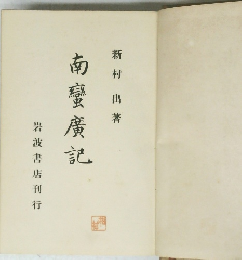 新村出著
南蠻廣記
岩波書店刊行